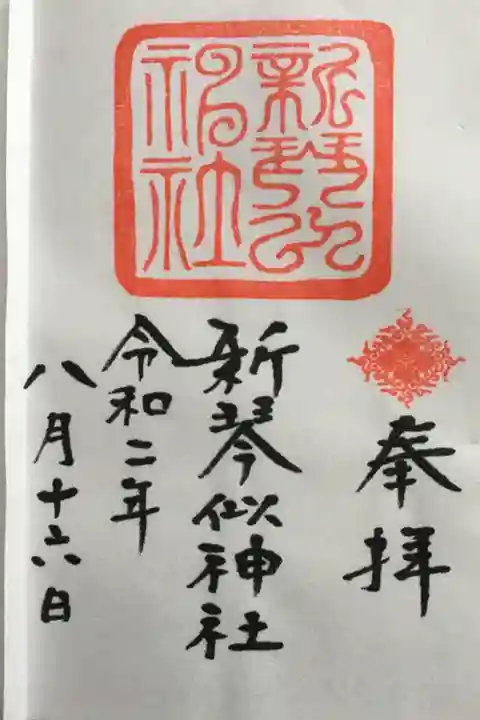 奉拝
新琴似神社
新琴似神社
令和二年
八月十六日